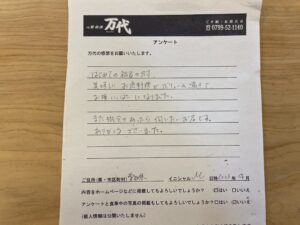 万代
ご予約・お問合せ
0799-52-1160
アンケート
万代の感想をお願いいたします。
はじめての
美味しいお魚料理が ボリューム満点で
お腹いっぱいになりました。
また機会があったら伺いたいお店です。
ありがとうございました。
ご住所(県・市区町村) イニシャル 日時
内容をホームページなどに掲載してもよろしいでしょうか? はい □いいえ
アンケートと食事中の写真の掲載もしてもよろしいでしょうか? □はい □いいえ
(個人情報は公開いたしません)